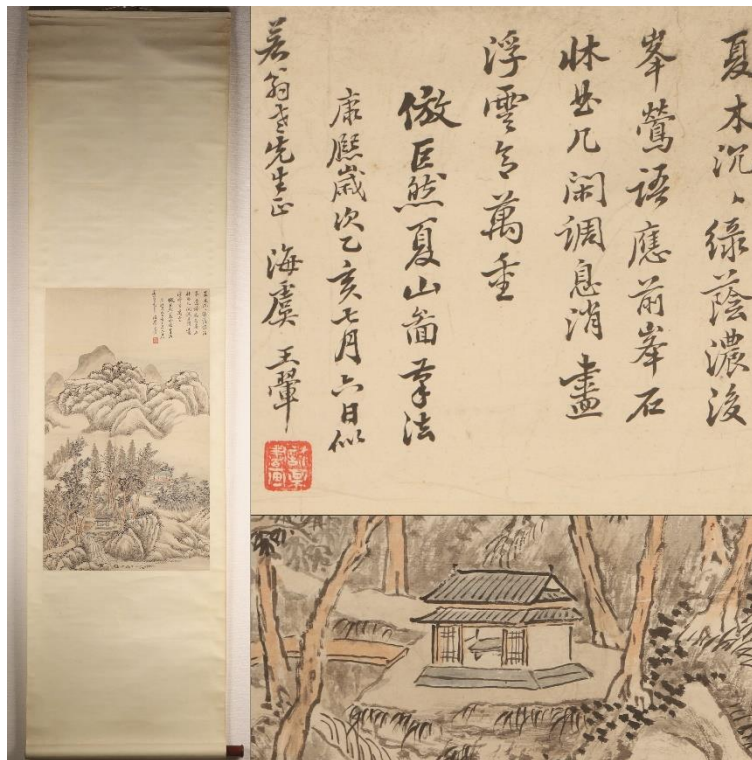 夏木沉〻綠蔭濃後
峯鶯語應前峯石
牀曲几閑調息消盡
浮雲萬重
倣巨然夏山啚筆法
康熙歲次乙亥七月六日似
若翁老先生正 海虞 王翬